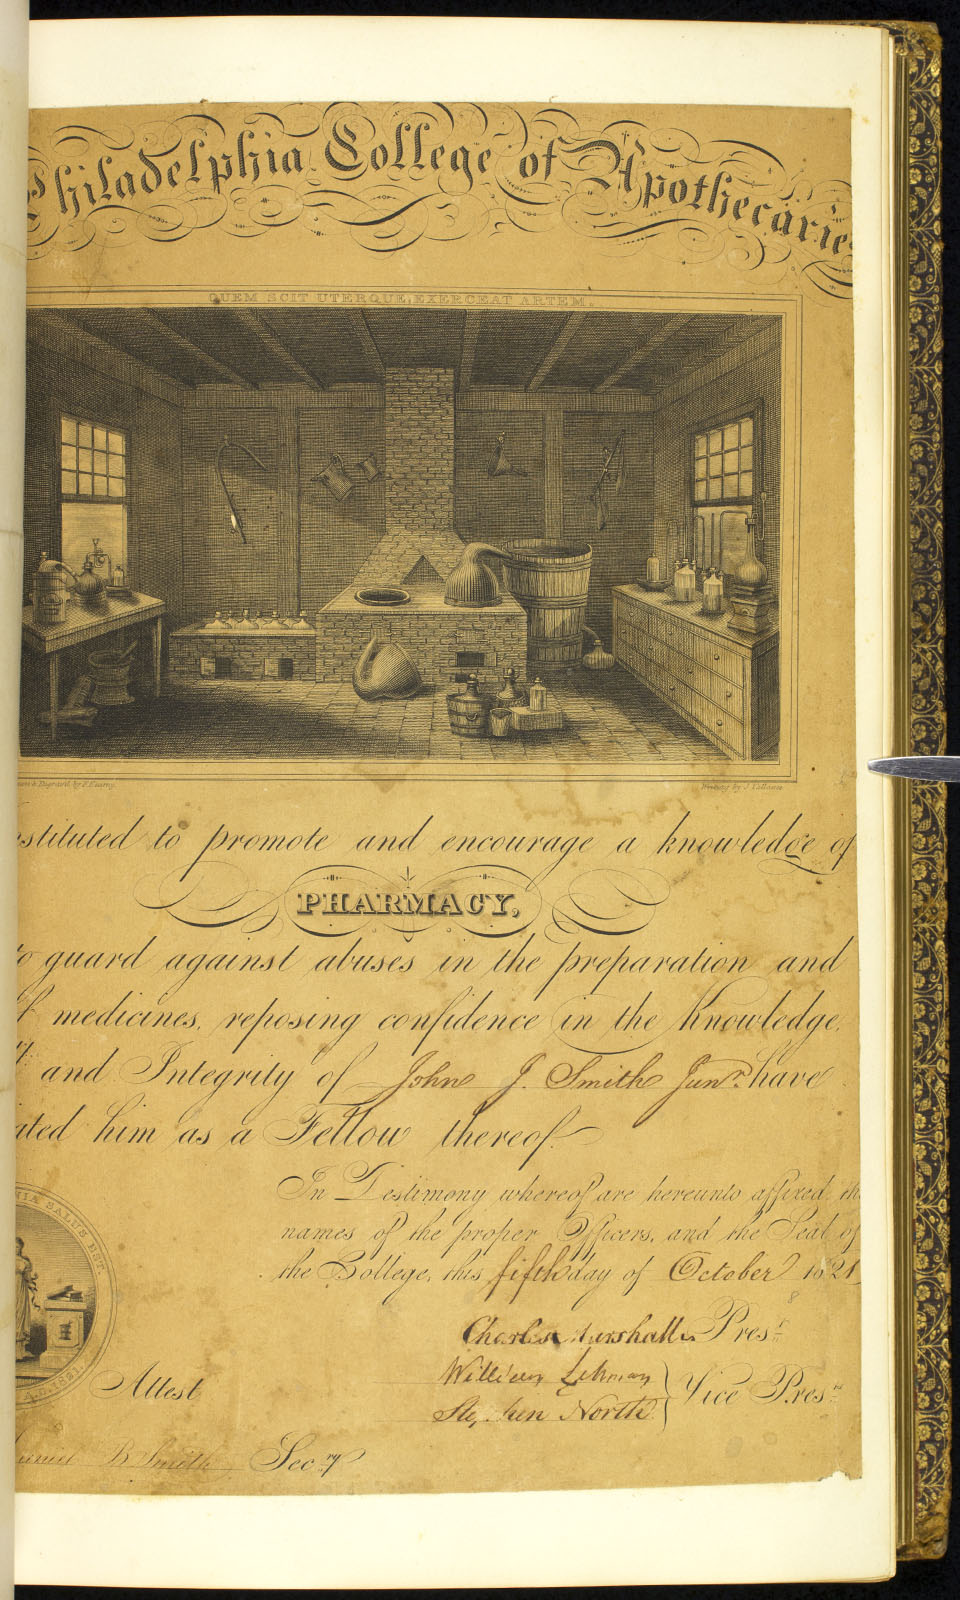 Philadelphia College of Apothecarie
QUEM SCIT UTERQUE, EXERCEAT ARTEM.
& Engraved by F. Kearny.
Writing by J. Vallance
stituted to promote and encourage a knowledge of
PHARMACY,
to guard against abuses in the preparation and
of medicines, reposing confidence in the Knowledge,
and Integrity of John J. Smith Junr. have
ated him as a Fellow thereof.
In Testimony whereof are hereunto affixed the
names of the proper Officers, and the Seal of
the College, this fifth day of October 1821
Charles Marshall Prest
William Lehman
Stephen North
Vice Prests
NIA SALUS EST.
A.D. 1821.
Attest
Daniel B Smith Secry